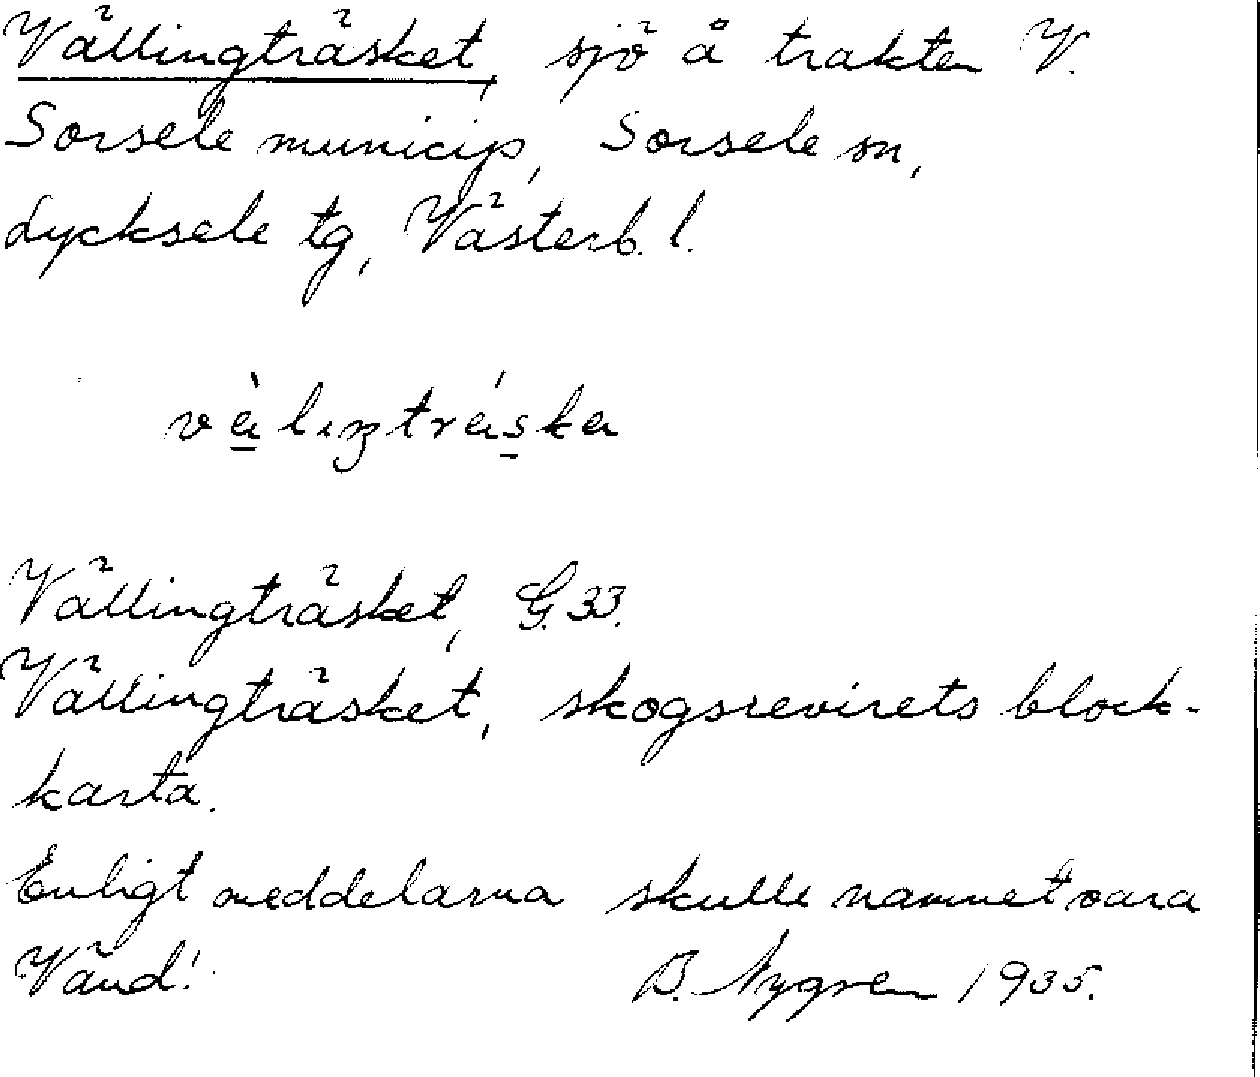 Vällingträsket, sjö å trakten V.
Sorsele municip, Sorsele sn,
Lycksele tg, Västerb. l.
vàlıŋtráska
Vällingträsket, G. 33.
Vällingträsket, skogsrevirets block-
karta.
Enligt meddelarna skulle namnet vara
Vänd! B. Nygren 1935.